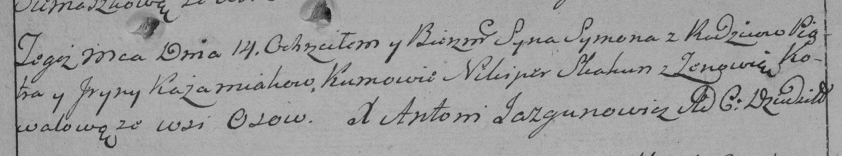 Tegoż Mca Dnia 14. Ochrzciłem y Bierzm. Syna Symona z Rodziców Pio-
tra y Jryny Kazamiakow, Kumowie Nikiper Skakun z Zenowią Ko-
walową ze wsi Osow. X Antoni Jazgunowicz